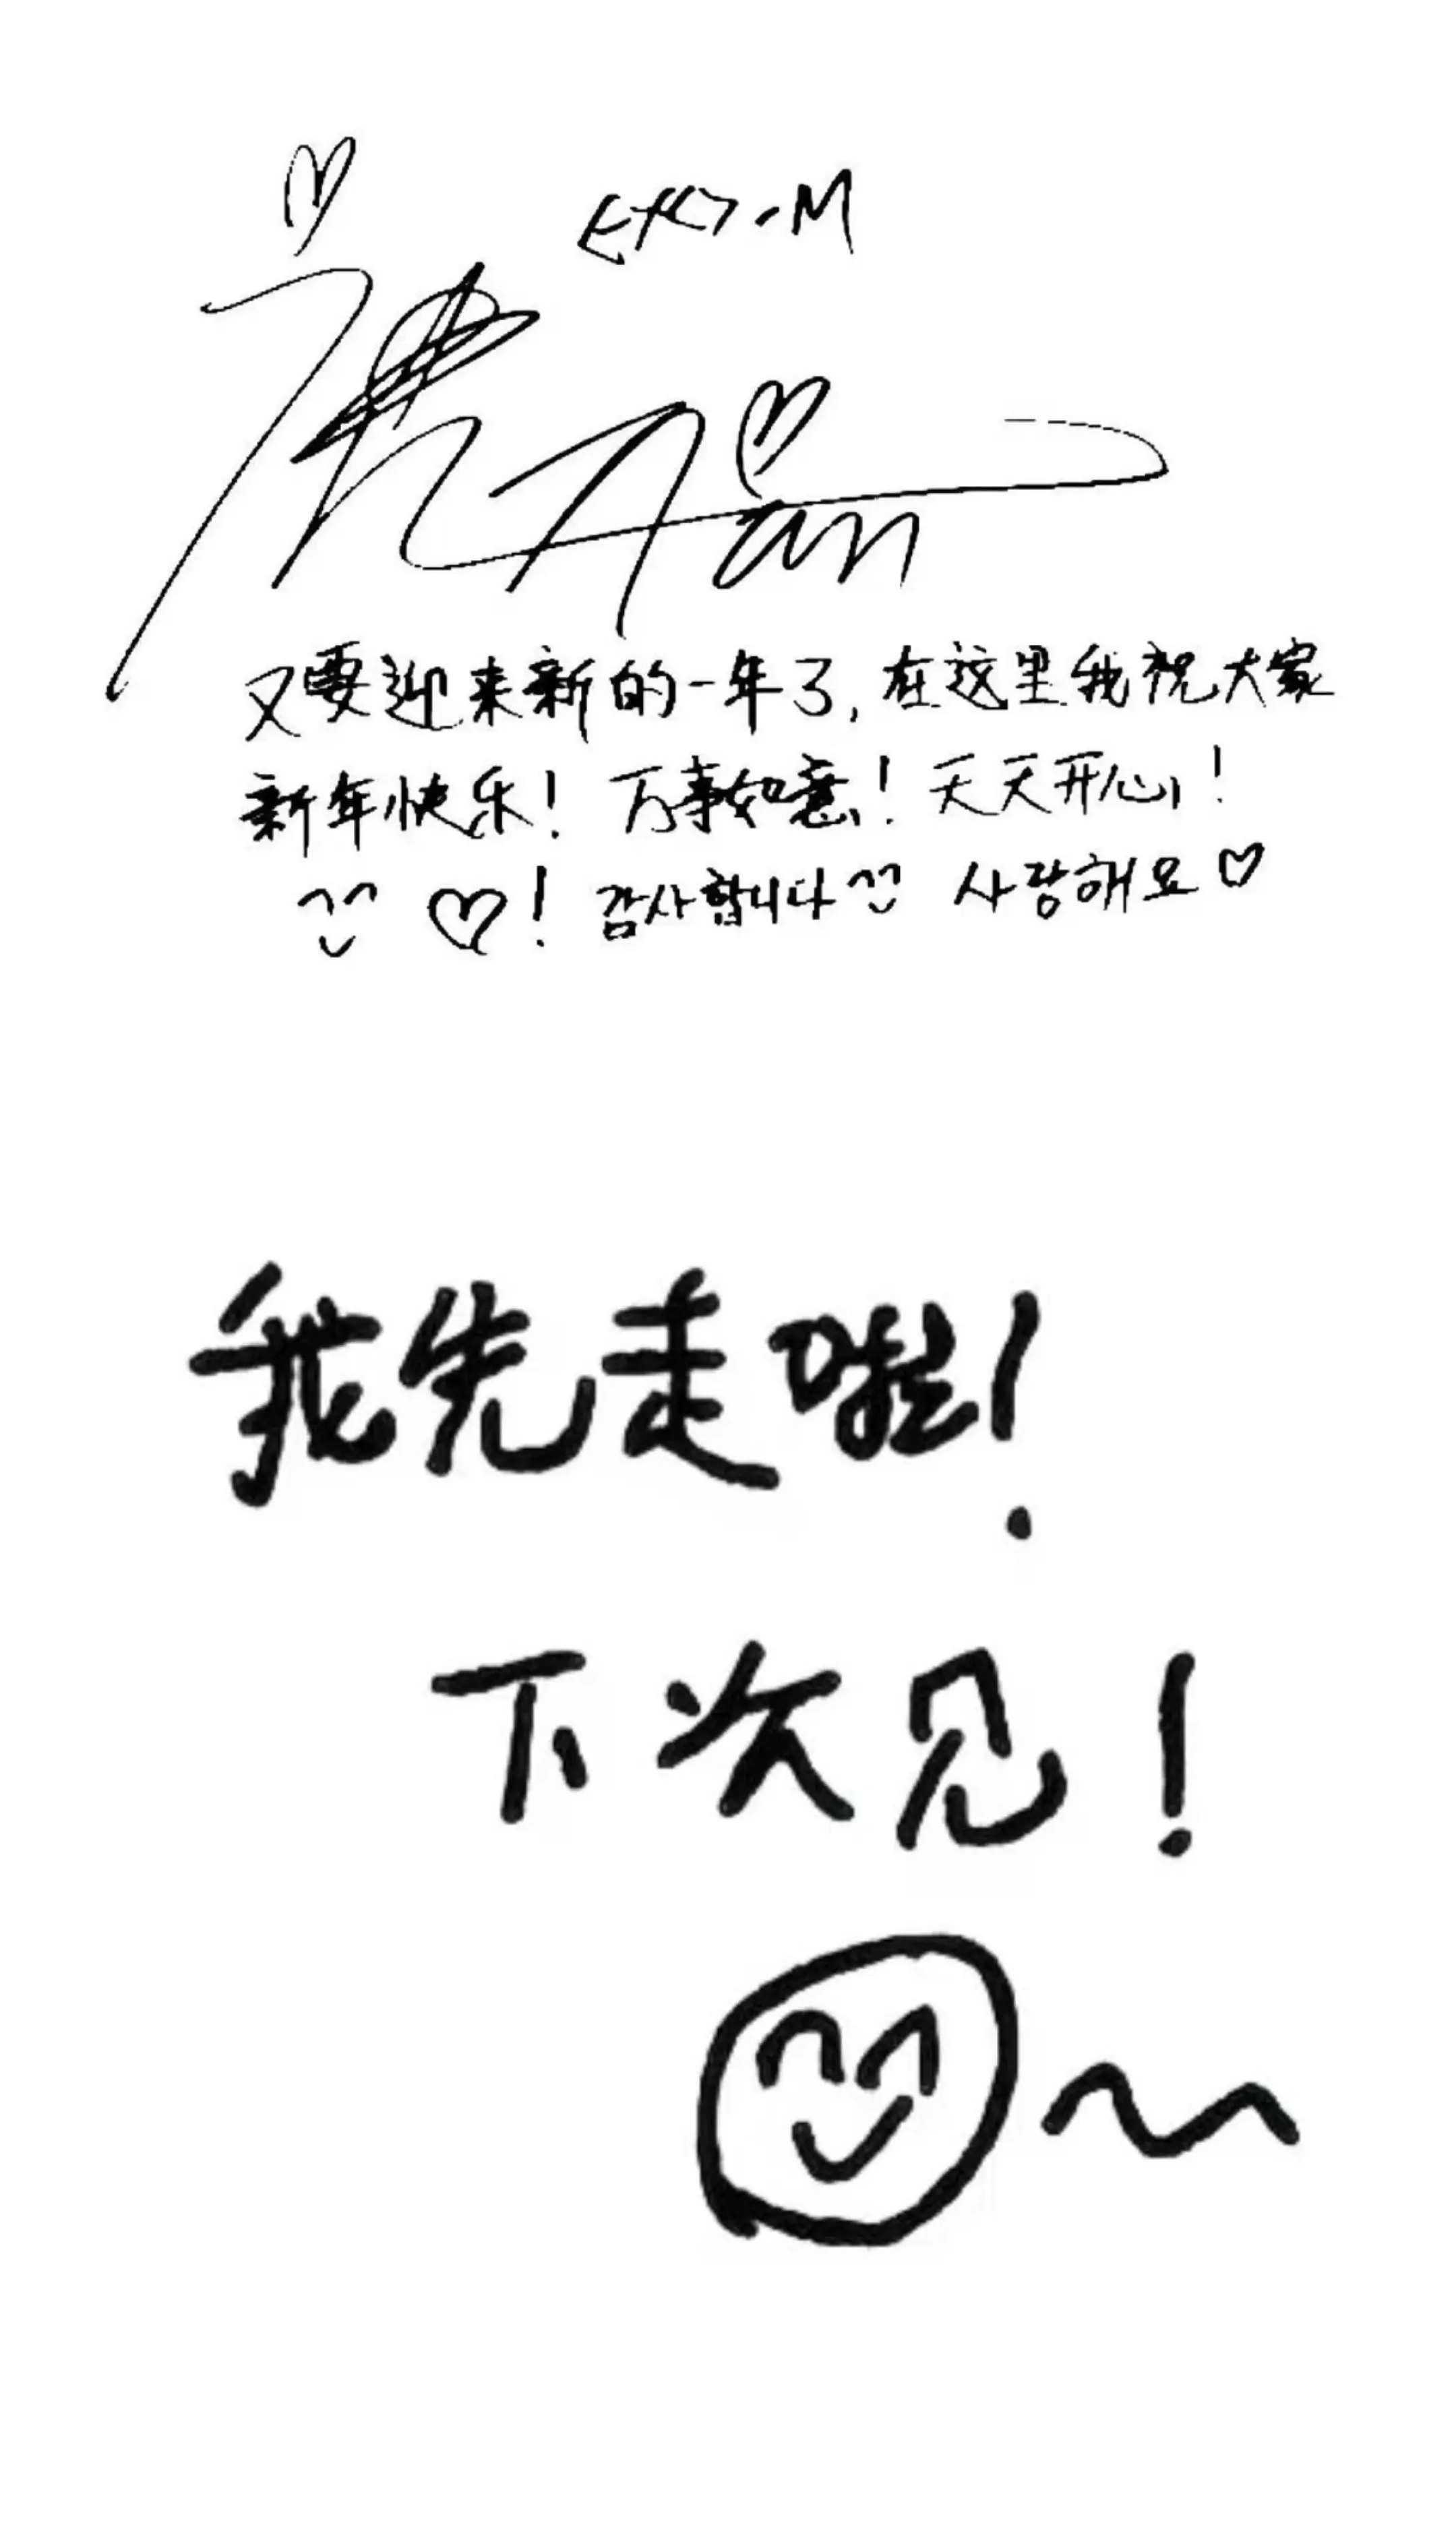 EXO-M
鹿 Han
又要迎来新的一年了,在这里我祝大家
新年快乐!万事如意!天天开心!
^^ ♡! 감사합니다^^ 사랑해요♡
我先走啦!
下次见!
~